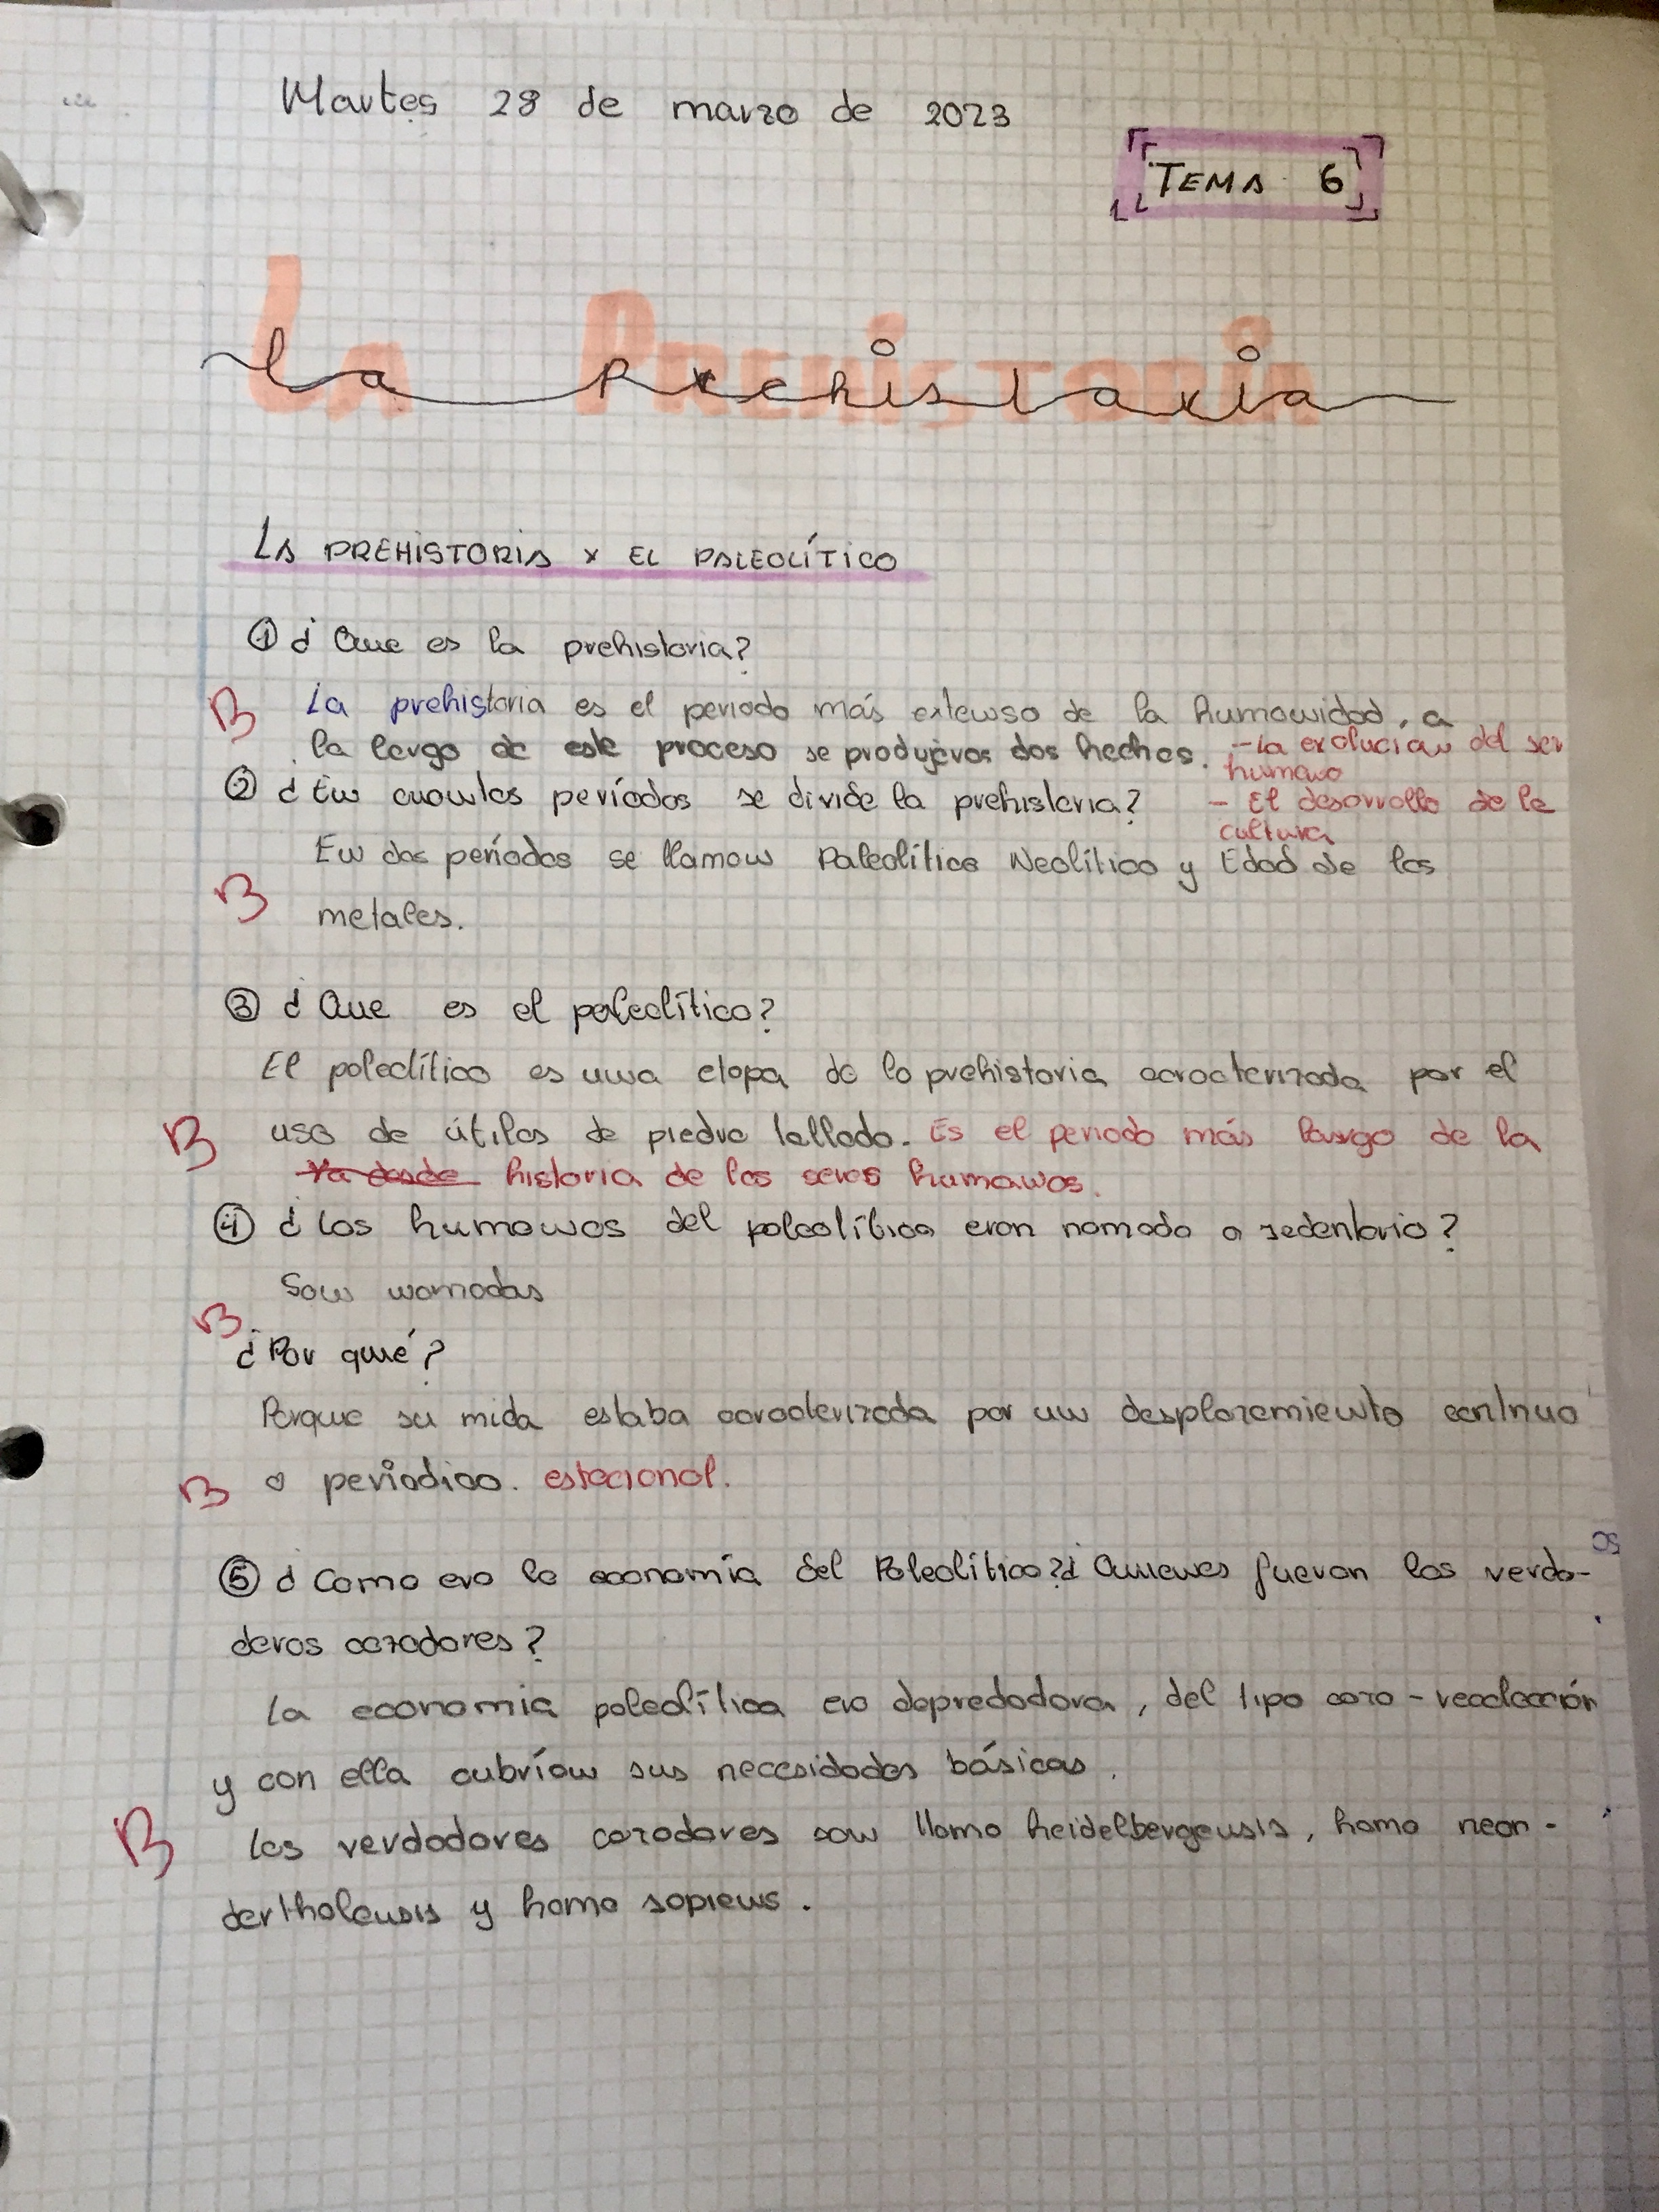 Martes 28 de marzo de 2023
TEMA 6
La Prehistoria
LA PREHISTORIA Y EL PALEOLÍTICO
① ¿Que es la prehistoria?
B La prehistoria es el periodo más extenso de la humanidad, a
la largo de este proceso se produjeros dos hechos. - La evolución del ser
humano
② ¿En cuantos períodos se divide la prehistoria? - El desarrollo de la
cultura
En dos períodos se llaman Paleolítico Neolítico y Edad de los
B metales.
③ ¿Que es el paleolítico?
El paleolítico es una etapa de la prehistoria caracterizada por el
B uso de útiles de piedra tallado. Es el periodo más largo de la
historia de los seres humanos.
④ ¿Los humanos del paleolítico eran nomada o sedentario?
Son nomadas
B
¿Por qué?
Porque su mida estaba caracterizada por un desplazamiento contnuo
B o periodico. estacional.
⑤ ¿Como era la economía del Paleolítico? ¿Quienes fueron los verda-
deros cazadores?
La economia paleolítica era depredadora, del tipo caza-recolección
y con ella cubrían sus necesidades básicas.
B Los verdadores cazadores son llomo heidelbergensis, homo nean-
derthalensis y homo sapiens.